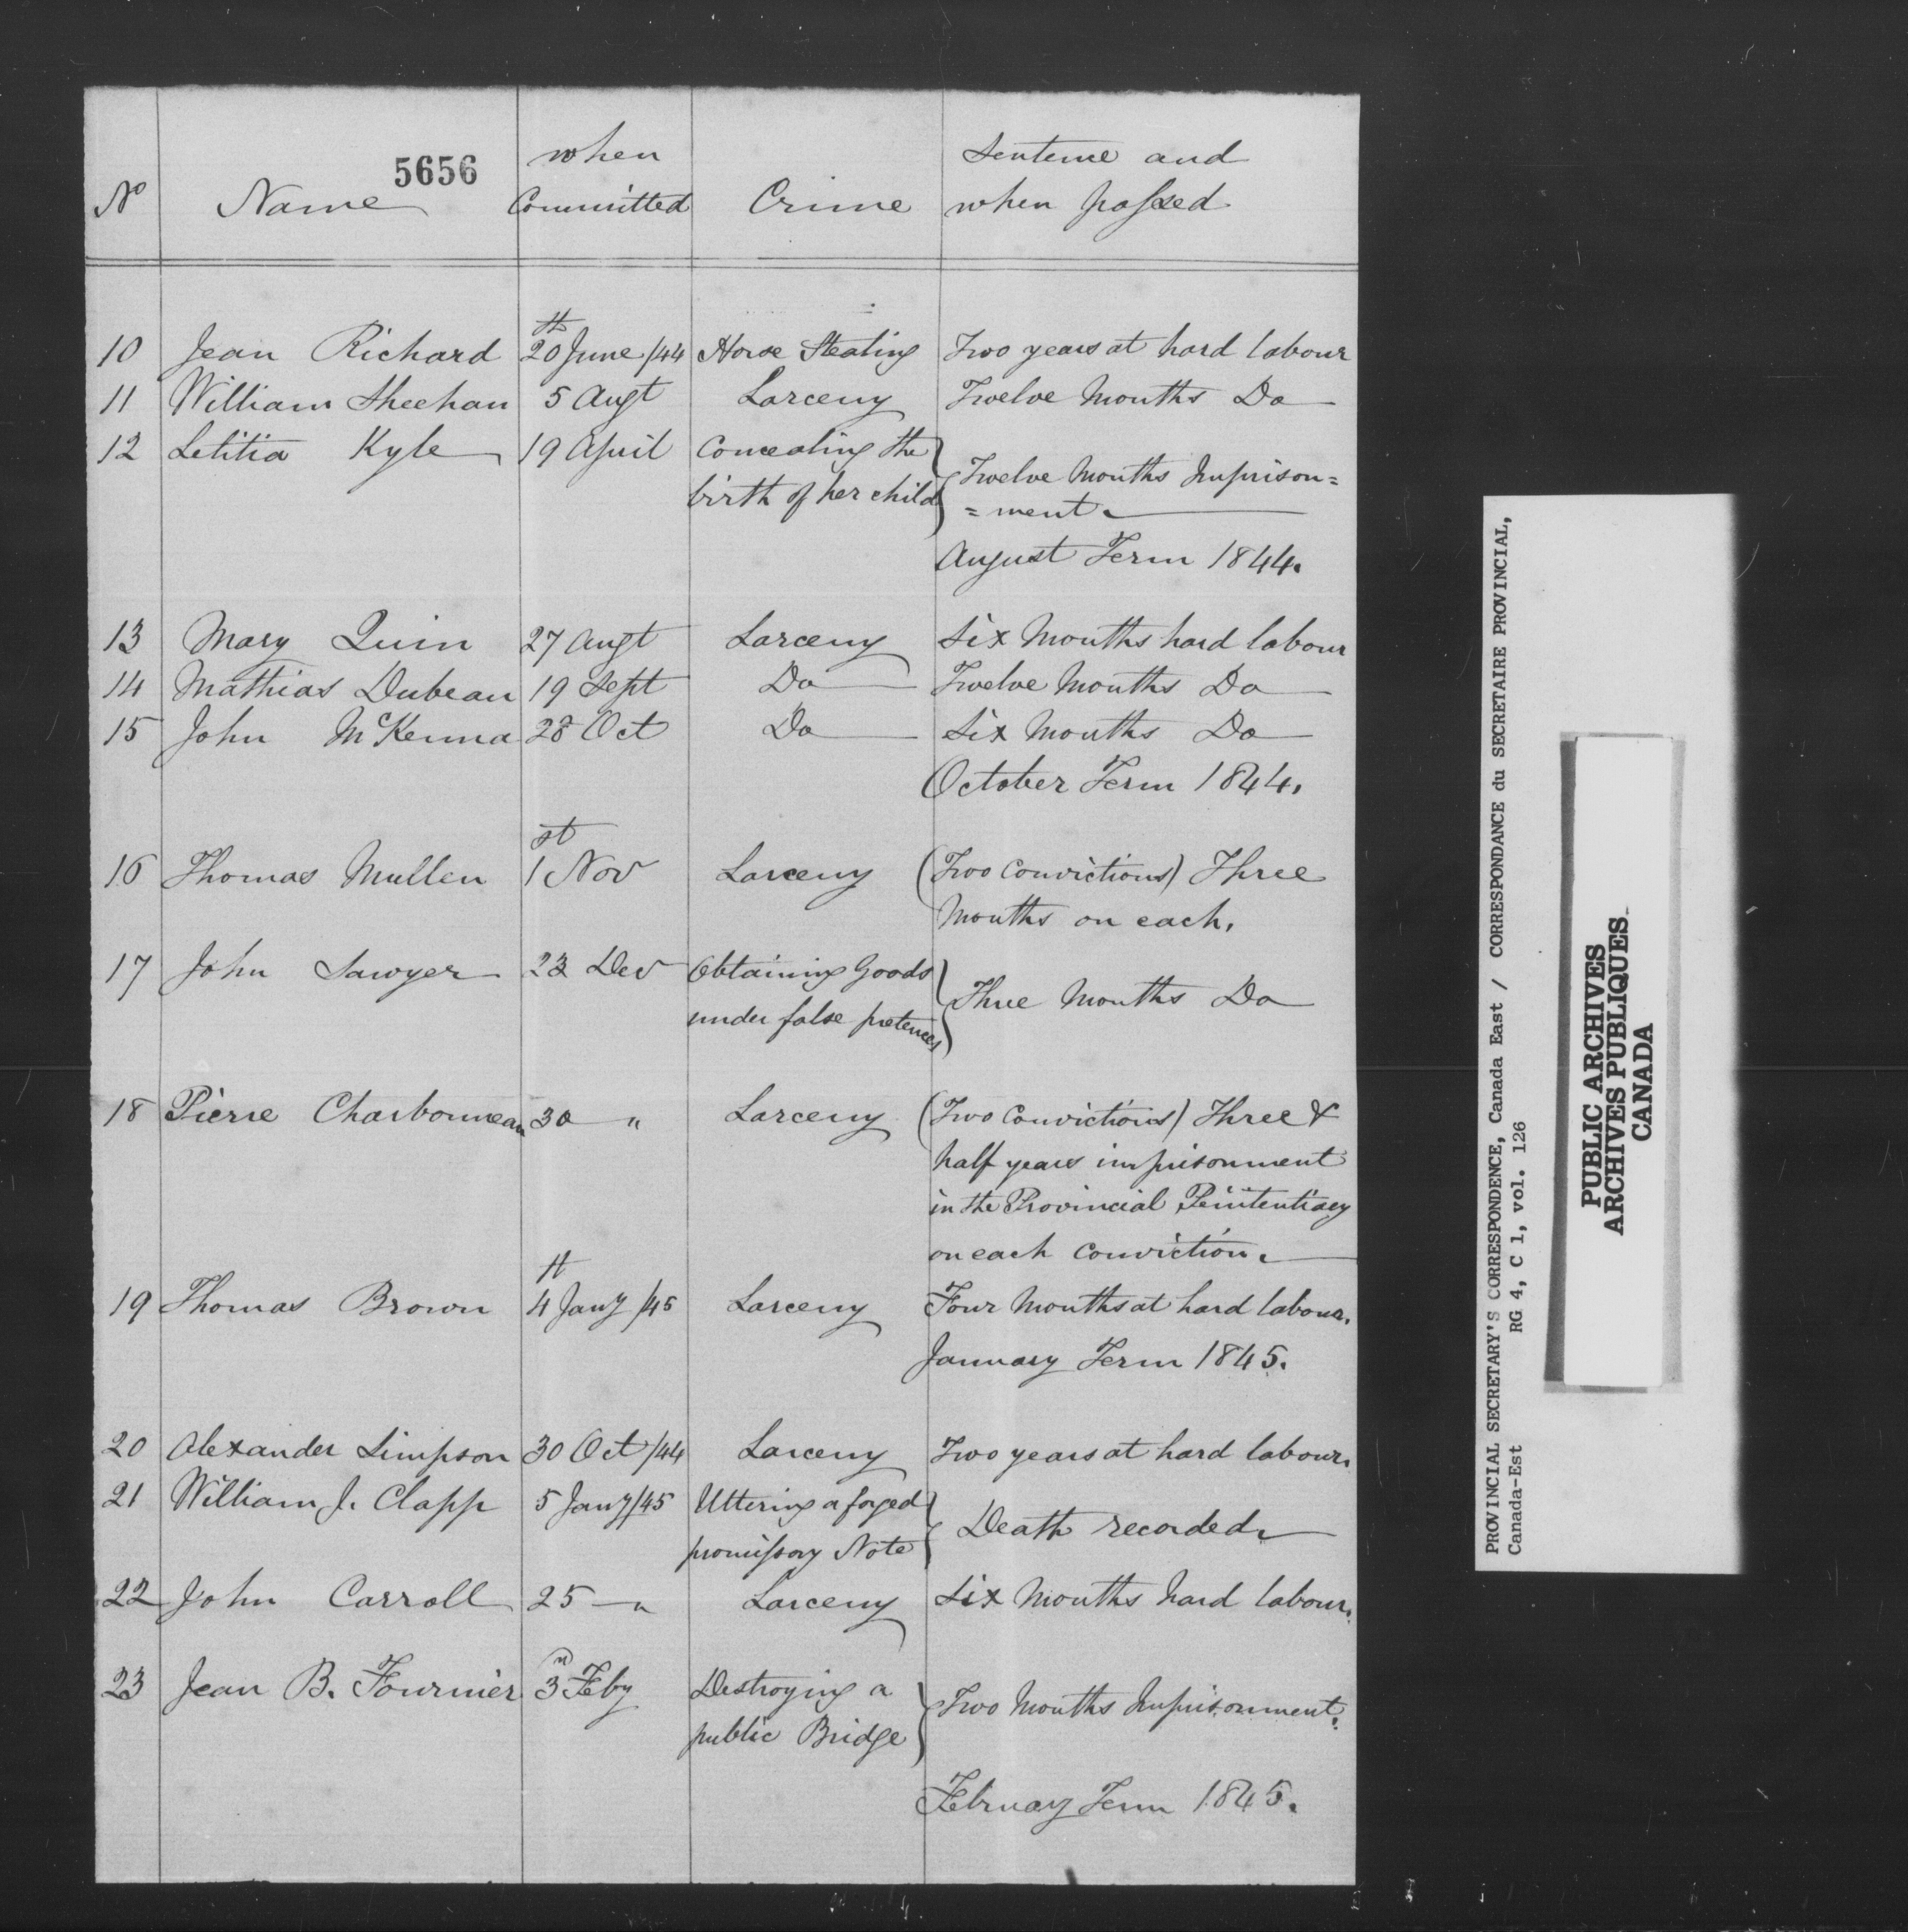 5656
No Name when Committed Crime Sentence and when passed
10 Jean Richard 20th June /44 Horse Stealing Two years at hard labour
11 William Sheehan 5 Augt Larceny Twelve Months Do
12 Letitia Kyle 19 April Concealing the
birth of her child Twelve Months Imprison=
=ment.
August Term 1844.
13 Mary Quin 27 Augt Larceny Six Months hard labour
14 Mathias Dubeau 19 Sept Do Twelve Months Do
15 John McKenna 28 Oct Do Six Months Do
October Term 1844.
16 Thomas Mullen 1st Nov Larceny (Two Convictions) Three
Months on each.
17 John Sawyer 23 Dec Obtaining Goods
under false pretences Three Months Do
18 Pierre Charbonneau 30 " Larceny (Two Convictions) Three &
half years imprisonment
in the Provincial Penitentiary
on each Conviction.
19 Thomas Brown 4th Jany /45 Larceny Four Months at hard labour.
January Term 1845.
20 Alexander Simpson 30 Oct /44 Larceny Two years at hard labour.
21 William J. Clapp 5 Jany /45 Uttering a forged
promissory Note Death recorded.
22 John Carroll 25 " Larceny Six Months hard labour.
23 Jean B. Fournier 3d Feby Destroying a
public Bridge Two Months Imprisonment.
February Term 1845.
PROVINCIAL SECRETARY'S CORRESPONDENCE, Canada East / CORRESPONDANCE du SECRETAIRE PROVINCIAL,
Canada-Est RG 4, C 1, vol. 126
PUBLIC ARCHIVES
ARCHIVES PUBLIQUES
CANADA